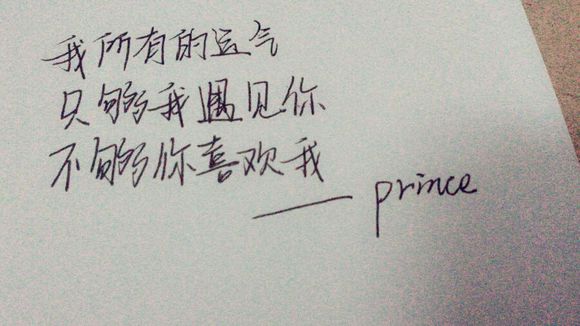 我所有的运气
只够我遇见你
不够你喜欢我
—— prince